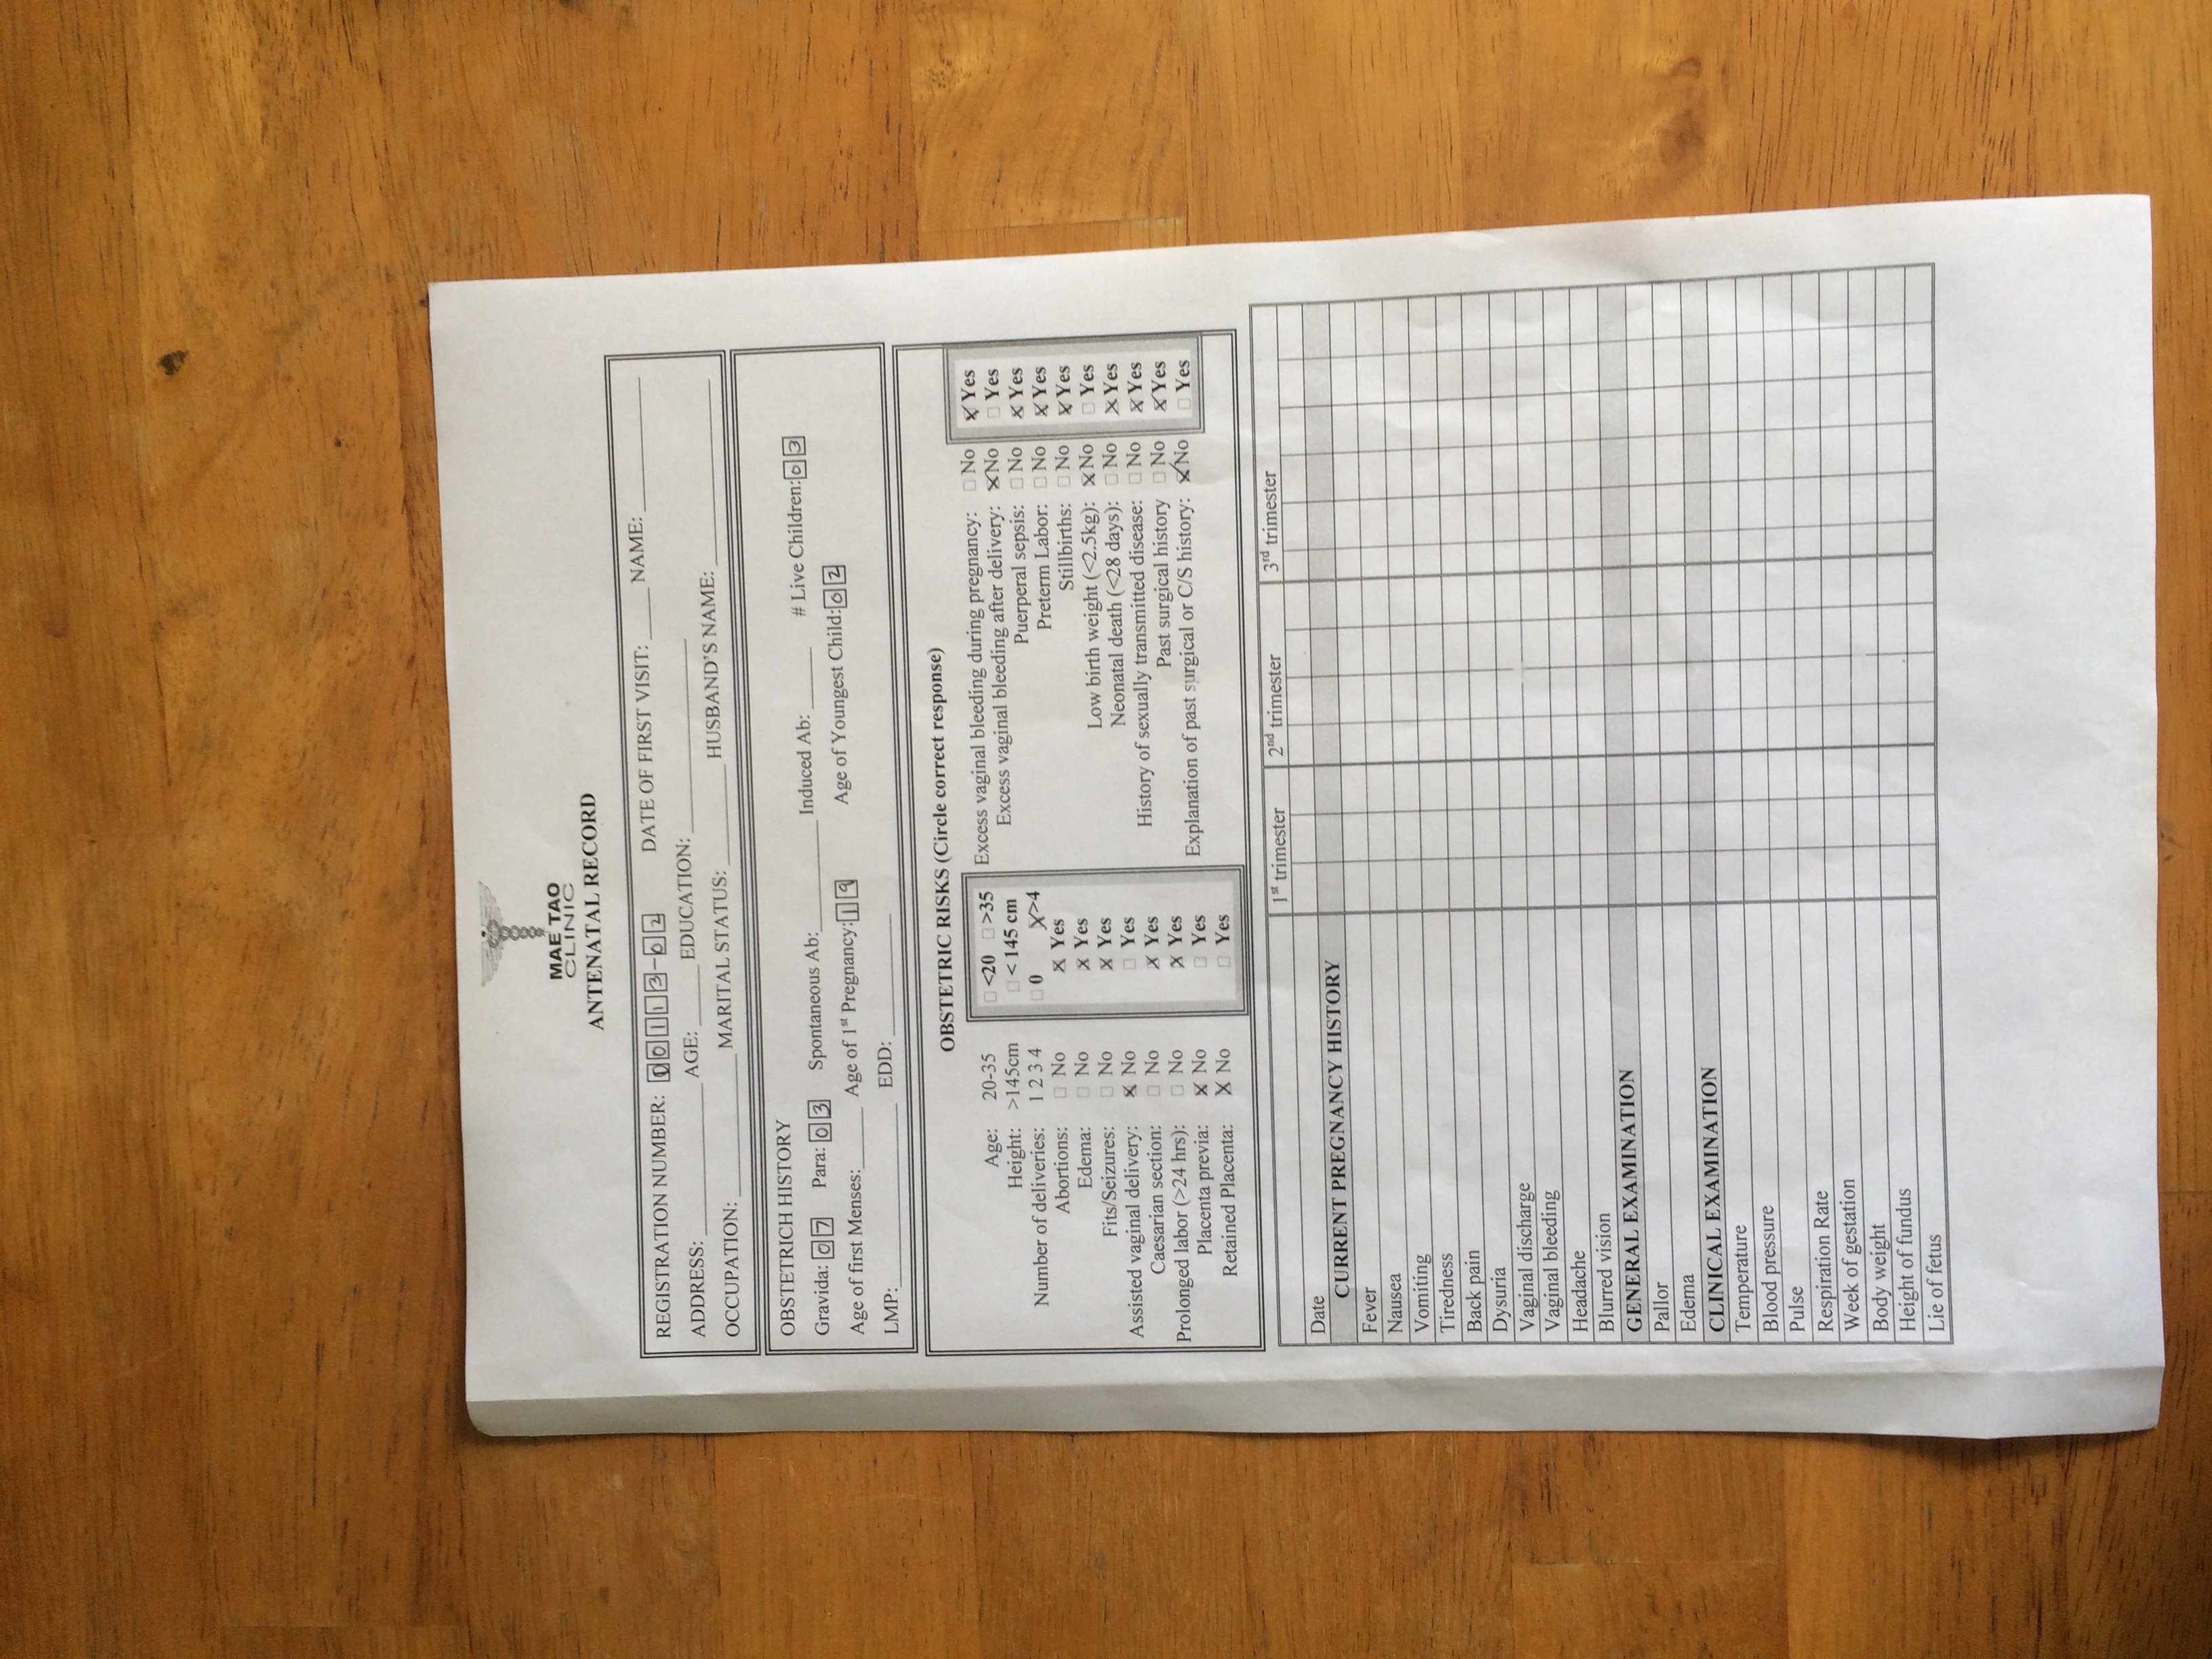 MAE TAO
CLINIC
ANTENATAL RECORD
REGISTRATION NUMBER: 00113-02 DATE OF FIRST VISIT: _____ NAME: _____________
ADDRESS: _______________ AGE: ______ EDUCATION: ___________________
OCCUPATION: ______________ MARITAL STATUS: __________ HUSBAND'S NAME: __________________
OBSTETRICH HISTORY
Gravida: 07 Para: 03 Spontaneous Ab:___________ Induced Ab: ______ # Live Children: 03
Age of first Menses:______ Age of 1st Pregnancy: 19 Age of Youngest Child: 02
LMP:__________________ EDD: ____________
OBSTETRIC RISKS (Circle correct response)
Age: 20-35 ☐ <20 ☐ >35
Height: >145cm ☐ < 145 cm
Number of deliveries: 1 2 3 4 ☐ 0 ☒ >4
Abortions: ☐ No ☒ Yes
Edema: ☐ No ☒ Yes
Fits/Seizures: ☐ No ☒ Yes
Assisted vaginal delivery: ☒ No ☐ Yes
Caesarian section: ☐ No ☒ Yes
Prolonged labor (>24 hrs): ☐ No ☒ Yes
Placenta previa: ☒ No ☐ Yes
Retained Placenta: ☒ No ☐ Yes
Excess vaginal bleeding during pregnancy: ☐ No ☒ Yes
Excess vaginal bleeding after delivery: ☒ No ☐ Yes
Puerperal sepsis: ☐ No ☒ Yes
Preterm Labor: ☐ No ☒ Yes
Stillbirths: ☐ No ☒ Yes
Low birth weight (<2.5kg): ☒ No ☐ Yes
Neonatal death (<28 days): ☐ No ☒ Yes
History of sexually transmitted disease: ☐ No ☒ Yes
Past surgical history ☐ No ☒ Yes
Explanation of past surgical or C/S history: ☒ No ☐ Yes
1st trimester 2nd trimester 3rd trimester
Date
CURRENT PREGNANCY HISTORY
Fever
Nausea
Vomiting
Tiredness
Back pain
Dysuria
Vaginal discharge
Vaginal bleeding
Headache
Blurred vision
GENERAL EXAMINATION
Pallor
Edema
CLINICAL EXAMINATION
Temperature
Blood pressure
Pulse
Respiration Rate
Week of gestation
Body weight
Height of fundus
Lie of fetus